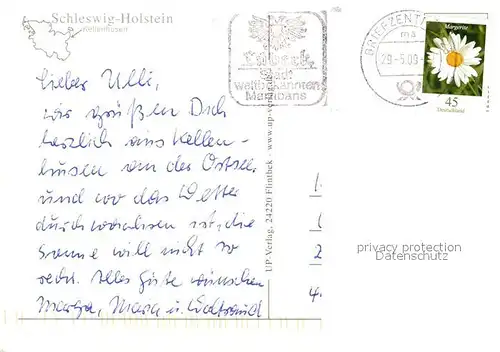 Schleswig-Holstein
Kellenhusen
Lübeck
Stadt
weltbekannten
Marzipans
BRIEFZENTR
ma
29-5.09
Margerite
45
Deutschland
Lieber Ulli,
wir grüßen Dich
herzlich aus Kellen-
husen an der Ostsee
und wo das Wetter
durchwachsen ist, die
Sonne will nicht so
recht. Alles Gute wünschen
Marga, Maria u. Waltraud
UP-Verlag, 24220 Flintbek · www.up-verlag.de
1.
2
4.
privacy protection
Datenschutz